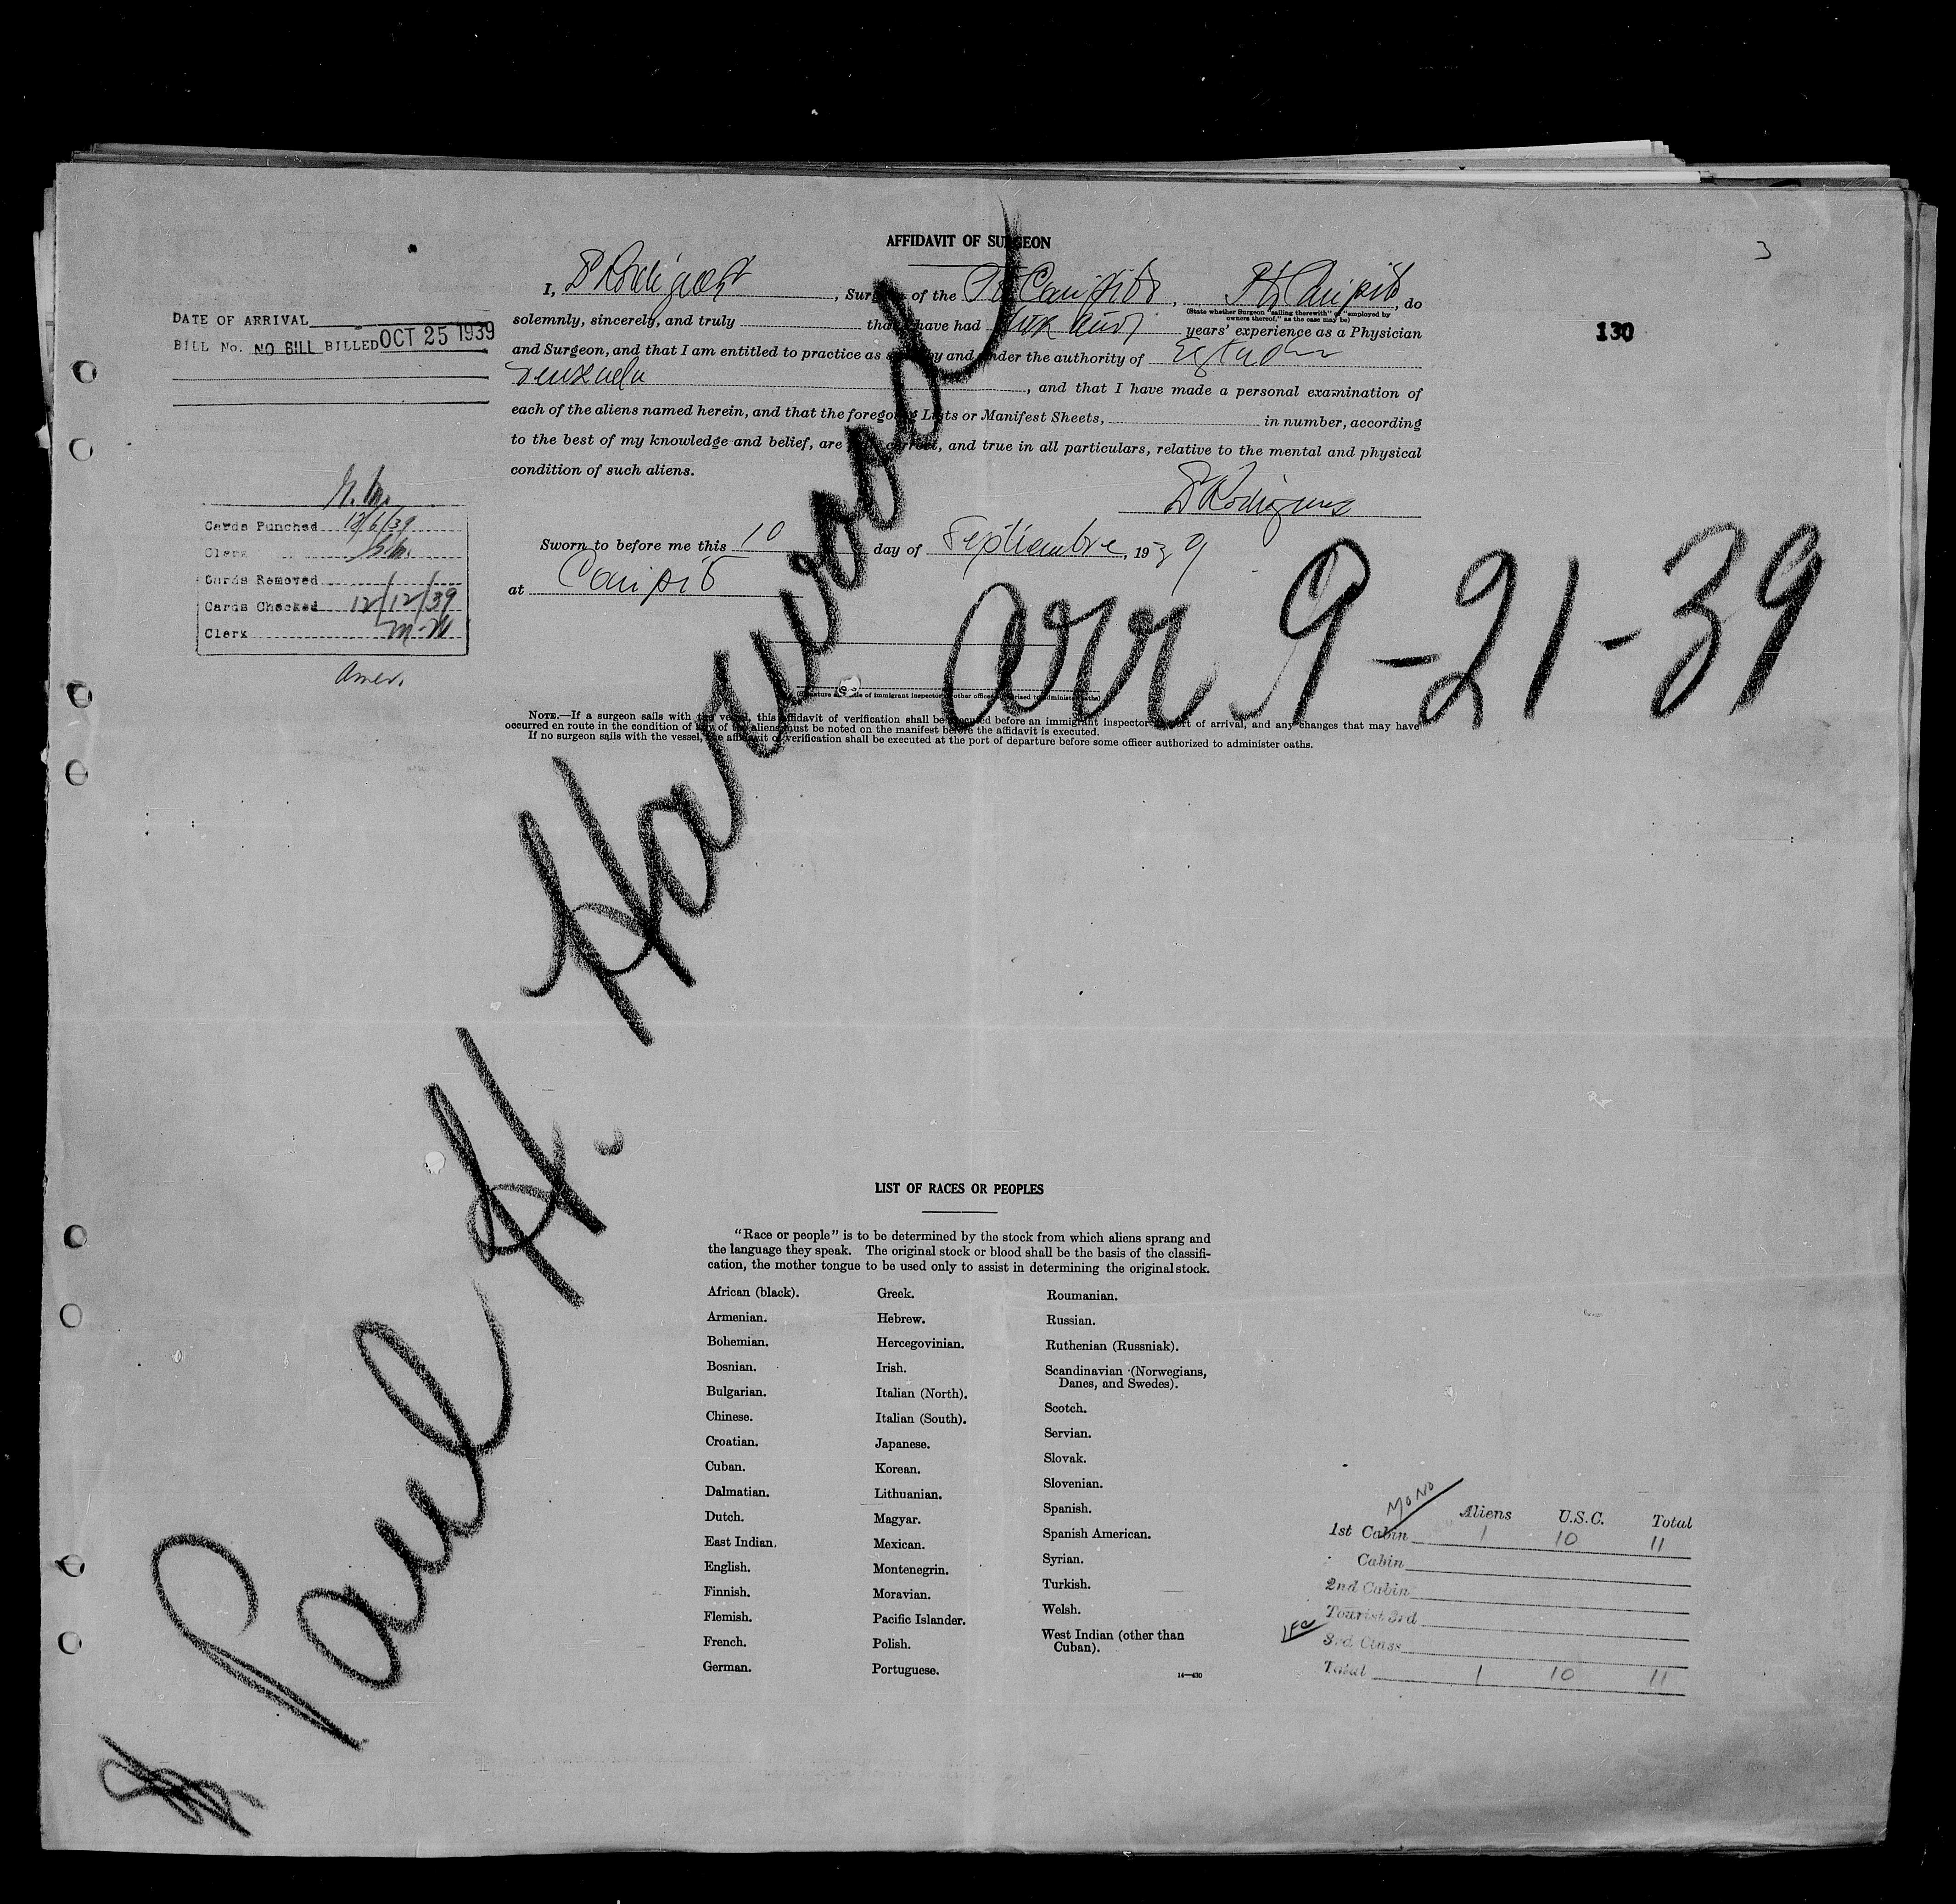 AFFIDAVIT OF SURGEON
3
I, , Surgeon of the , , do
(State whether Surgeon "sailing therewith" or "employed by
owners thereof," as the case may be)
solemnly, sincerely, and truly that I have had years' experience as a Physician
and Surgeon, and that I am entitled to practice as such by and under the authority of
, and that I have made a personal examination of
each of the aliens named herein, and that the foregoing Lists or Manifest Sheets, in number, according
to the best of my knowledge and belief, are full, correct, and true in all particulars, relative to the mental and physical
condition of such aliens.
Sworn to before me this 10 day of Septiembre, 1939
at Caripito
(Signature and title of immigrant inspector or other officer authorized to administer oaths)
NOTE.—If a surgeon sails with the vessel, this affidavit of verification shall be executed before an immigrant inspector at port of arrival, and any changes that may have
occurred en route in the condition of any of the aliens must be noted on the manifest before the affidavit is executed.
If no surgeon sails with the vessel, the affidavit of verification shall be executed at the port of departure before some officer authorized to administer oaths.
DATE OF ARRIVAL
BILL No. NO BILL BILLED OCT 25 1939
130
Cards Punched 12/6/39
Clerk
Cards Removed
Cards Checked 12/12/39
Clerk M-M
Amer.
arr 9-21-39
Paul H. Harwood
LIST OF RACES OR PEOPLES
"Race or people" is to be determined by the stock from which aliens sprang and
the language they speak. The original stock or blood shall be the basis of the classifi-
cation, the mother tongue to be used only to assist in determining the original stock.
African (black).
Armenian.
Bohemian.
Bosnian.
Bulgarian.
Chinese.
Croatian.
Cuban.
Dalmatian.
Dutch.
East Indian.
English.
Finnish.
Flemish.
French.
German.
Greek.
Hebrew.
Hercegovinian.
Irish.
Italian (North).
Italian (South).
Japanese.
Korean.
Lithuanian.
Magyar.
Mexican.
Montenegrin.
Moravian.
Pacific Islander.
Polish.
Portuguese.
Roumanian.
Russian.
Ruthenian (Russniak).
Scandinavian (Norwegians,
Danes, and Swedes).
Scotch.
Servian.
Slovak.
Slovenian.
Spanish.
Spanish American.
Syrian.
Turkish.
Welsh.
West Indian (other than
Cuban).
14—430
MONO
Aliens U.S.C. Total
1st Cabin 1 10 11
Cabin
2nd Cabin
Tourist 3rd
3rd Class
Total 1 10 11